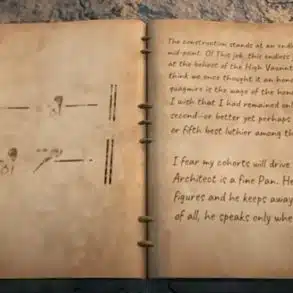 The construction stands at an endl
mid-point. Of This job, this endless
at the behest of the High Vaunt
think we once thought it an hono
quagmire is the wage of the hono
I wish that I had remained onl
second—or better yet perhaps
or fifth best luthier among th
I fear my cohorts will drive
Architect is a fine Pan. He
figures and he keeps away
of all, he speaks only whe